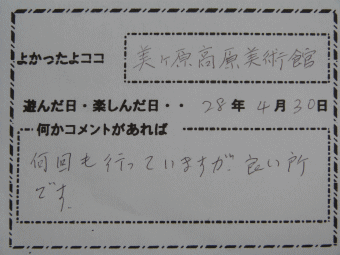 よかったよココ 美ヶ原高原美術館
遊んだ日・楽しんだ日・・ 28年 4月30日
何かコメントがあれば
何回も行っていますが、良い所
です。